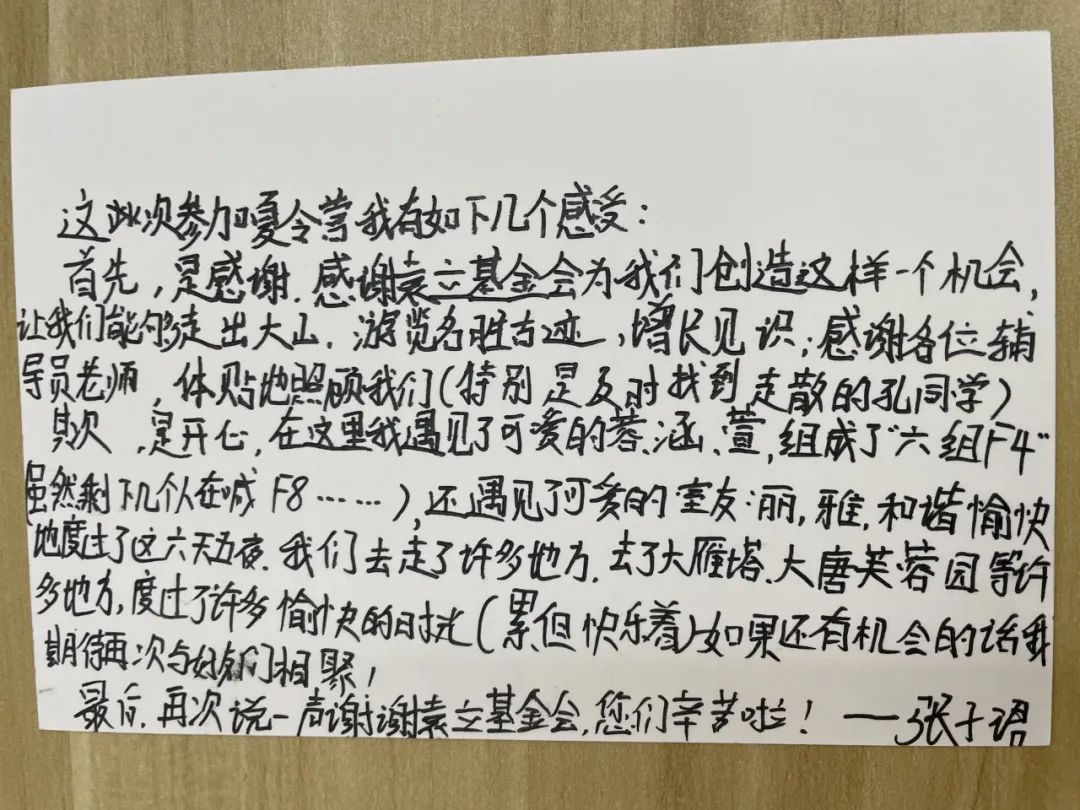 这此次参加夏令营我有如下几个感受：
首先，是感谢.感谢袁立基金会为我们创造这样一个机会，
让我们能够走出大山.游览名胜古迹，增长见识；感谢各位辅
导员老师，体贴地照顾我们(特别是及时找到走散的孔同学)
其次，是开心，在这里我遇见了可爱的蓉、涵、萱，组成了“六组F4”
(虽然剩下几个人在喊F8……)，还遇见了可爱的室友：丽，雅，和谐愉快
地度过了这六天五夜.我们去走了许多地方.去了大雁塔、大唐芙蓉园等许
多地方，度过了许多愉快的时光(累但快乐着)如果还有机会的话我
期待再次与好友们相聚！
最后.再次说一声谢谢袁立基金会，您们辛苦啦！——张子语